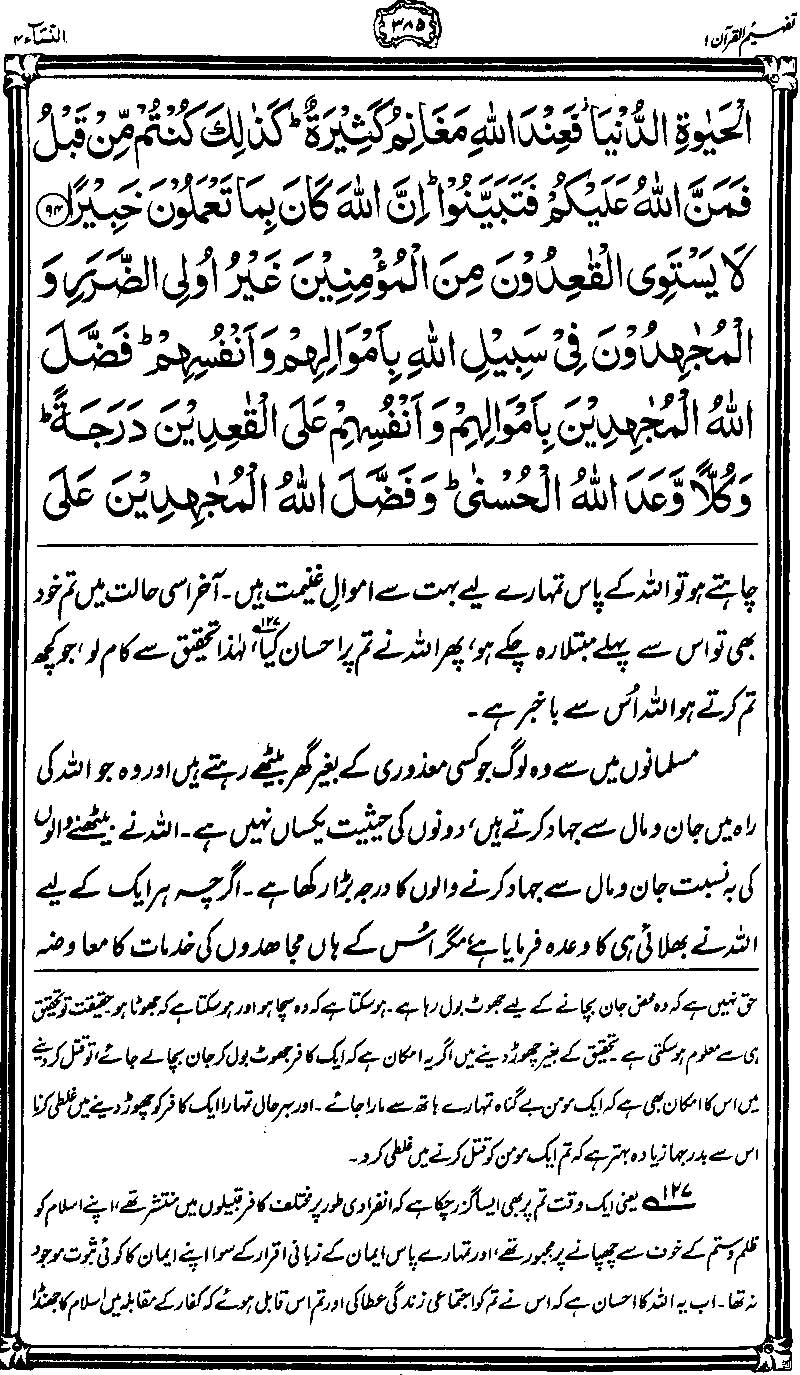 تفہیم القرآن ۱
۳۸۵
النساء ۴
الْحَيٰوةِ الدُّنْيَا ۫ فَعِنْدَ اللّٰهِ مَغَانِمُ كَثِيْرَةٌ ؕ كَذٰلِكَ كُنْتُمْ مِّنْ قَبْلُ
فَمَنَّ اللّٰهُ عَلَيْكُمْ فَتَبَيَّنُوْا ؕ اِنَّ اللّٰهَ كَانَ بِمَا تَعْمَلُوْنَ خَبِيْرًا ﴿۹۴﴾
لَا يَسْتَوِى الْقٰعِدُوْنَ مِنَ الْمُؤْمِنِيْنَ غَيْرُ اُولِى الضَّرَرِ وَ
الْمُجٰهِدُوْنَ فِىْ سَبِيْلِ اللّٰهِ بِاَمْوَالِهِمْ وَاَنْفُسِهِمْ ؕ فَضَّلَ
اللّٰهُ الْمُجٰهِدِيْنَ بِاَمْوَالِهِمْ وَاَنْفُسِهِمْ عَلَى الْقٰعِدِيْنَ دَرَجَةً ؕ
وَكُلًّا وَّعَدَ اللّٰهُ الْحُسْنٰى ؕ وَفَضَّلَ اللّٰهُ الْمُجٰهِدِيْنَ عَلَى
چاہتے ہو تو اللہ کے پاس تمہارے لیے بہت سے اموالِ غنیمت ہیں۔ آخر اسی حالت میں تم خود
بھی تو اس سے پہلے مبتلا رہ چکے ہو، پھر اللہ نے تم پر احسان کیا۱۲۷، لہٰذا تحقیق سے کام لو، جو کچھ
تم کرتے ہو اللہ اُس سے باخبر ہے۔
مسلمانوں میں سے وہ لوگ جو کسی معذوری کے بغیر گھر بیٹھے رہتے ہیں اور وہ جو اللہ کی
راہ میں جان و مال سے جہاد کرتے ہیں، دونوں کی حیثیت یکساں نہیں ہے۔ اللہ نے بیٹھنے والوں
کی بہ نسبت جان و مال سے جہاد کرنے والوں کا درجہ بڑا رکھا ہے۔ اگرچہ ہر ایک کے لیے
اللہ نے بھلائی ہی کا وعدہ فرمایا ہے، مگر اُس کے ہاں مجاہدوں کی خدمات کا معاوضہ
حق نہیں ہے کہ وہ محض جان بچانے کے لیے جھوٹ بول رہا ہے۔ ہو سکتا ہے کہ وہ سچا ہو اور ہو سکتا ہے کہ جھوٹا ہو۔ حقیقت تو تحقیق
ہی سے معلوم ہو سکتی ہے۔ تحقیق کے بغیر چھوڑ دینے میں اگر یہ امکان ہے کہ ایک کافر جھوٹ بول کر جان بچا لے جائے، تو قتل کر دینے
میں اس کا امکان بھی ہے کہ ایک مومن بے گناہ تمہارے ہاتھ سے مارا جائے۔ اور بہرحال تمہارا ایک کافر کو چھوڑ دینے میں غلطی کرنا
اس سے بدرجہا زیادہ بہتر ہے کہ تم ایک مومن کو قتل کرنے میں غلطی کرو۔
۱۲۷ یعنی ایک وقت تم پر بھی ایسا گزر چکا ہے کہ انفرادی طور پر مختلف کافر قبیلوں میں منتشر تھے، اپنے اسلام کو
ظلم و ستم کے خوف سے چھپانے پر مجبور تھے، اور تمہارے پاس ایمان کے زبانی اقرار کے سوا اپنے ایمان کا کوئی ثبوت موجود
نہ تھا۔ اب یہ اللہ کا احسان ہے کہ اس نے تم کو اجتماعی زندگی عطا کی اور تم اس قابل ہوئے کہ کفار کے مقابلہ میں اسلام کا جھنڈا